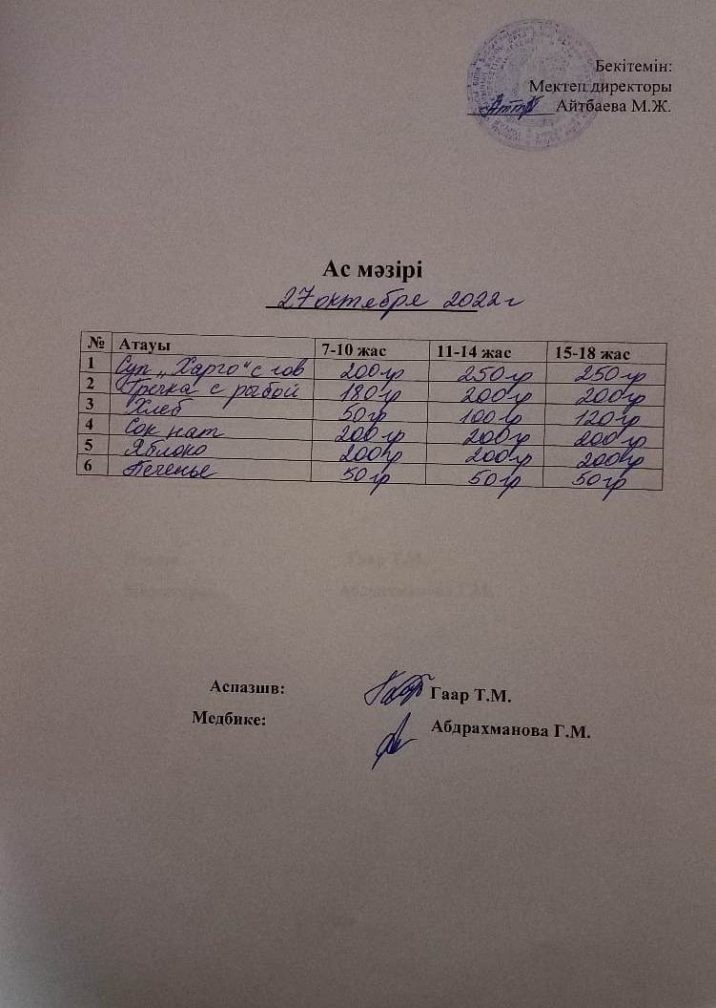 Бекітемін:
Мектеп директоры
Айтбаева М.Ж.
Ас мәзірі
27 октября 2022 г
№ Атауы 7-10 жас 11-14 жас 15-18 жас
1 Суп „Харго“ с гов 200гр 250гр 250гр
2 Гречка с рыбой 180гр 200гр 200гр
3 Хлеб 50гр 100гр 120гр
4 Сок нат 200гр 200гр 200гр
5 Яблоко 200гр 200гр 200гр
6 Печенье 50гр 50гр 50гр
Аспазшв: Гаар Т.М.
Медбике: Абдрахманова Г.М.